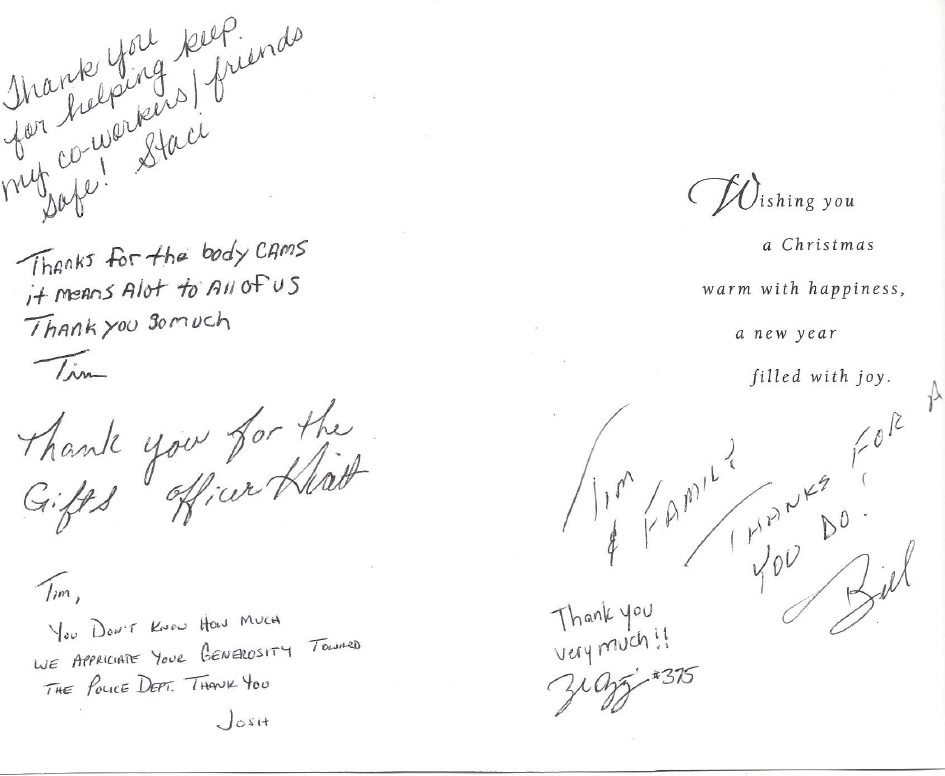 Thank you
for helping keep.
my co-workers/friends
safe! Staci
Thanks for the body CAMS
it means Alot to All of us
Thank you So much
Tim
Thank you for the
Gifts Officer
Tim,
You Don't Know How Much
We Appriciate Your Generosity Toward
The Police Dept. Thank You
Josh
Wishing you
a Christmas
warm with happiness,
a new year
filled with joy.
Tim
& Family
Thanks for A
You Do!
Bill
Thank you
very much!!
#375